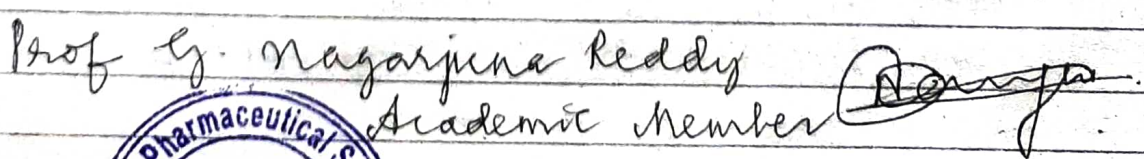 Prof G. Nagarjuna Reddy
Academic Member
Pharmaceutical S